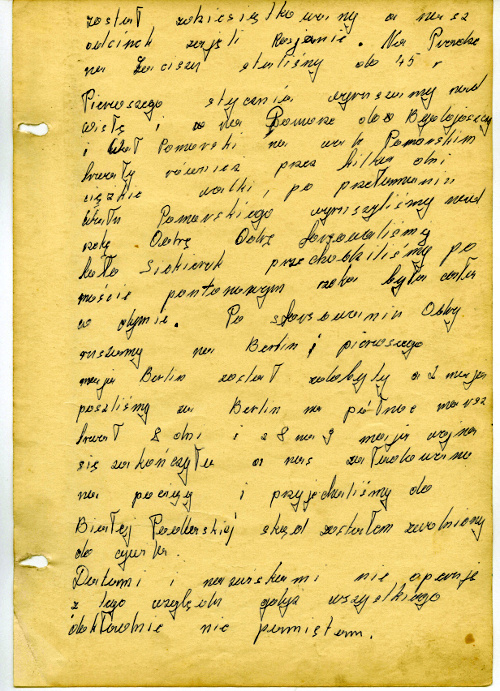 został zdziesiątkowany a nasz
odcinek zajęli Rosjanie. Na Pradze
na Zaciszu staliśmy do 45 r
Pierwszego stycznia wyruszamy nad
wisłę i na Pomorze do Bydgoszczy
i Wał Pomorski na wale Pomorskim
trwały również przez kilka dni
ciężkie walki, po przełamaniu
Wału Pomorskiego wyruszyliśmy nad
rzekę Odrę Odrę forsowaliśmy
koło Siekierek przechodziliśmy po
moście pontonowym rzeka była cała
w dymie. Po sforsowaniu Odry
ruszamy na Berlin i pierwszego
maja Berlin został zdobyty a 2 maja
poszliśmy za Berlin na północ marsz
trwał 8 dni i z 8 na 9 maja wojna
się zakończyła a nas załadowano
na pociąg i przyjechaliśmy do
Białej Podlaskiej skąd zostałem zwolniony
do cywila.
Datami i nazwiskami nie operuję
z tego względu gdyż wszystkiego
dokładnie nie pamiętam.